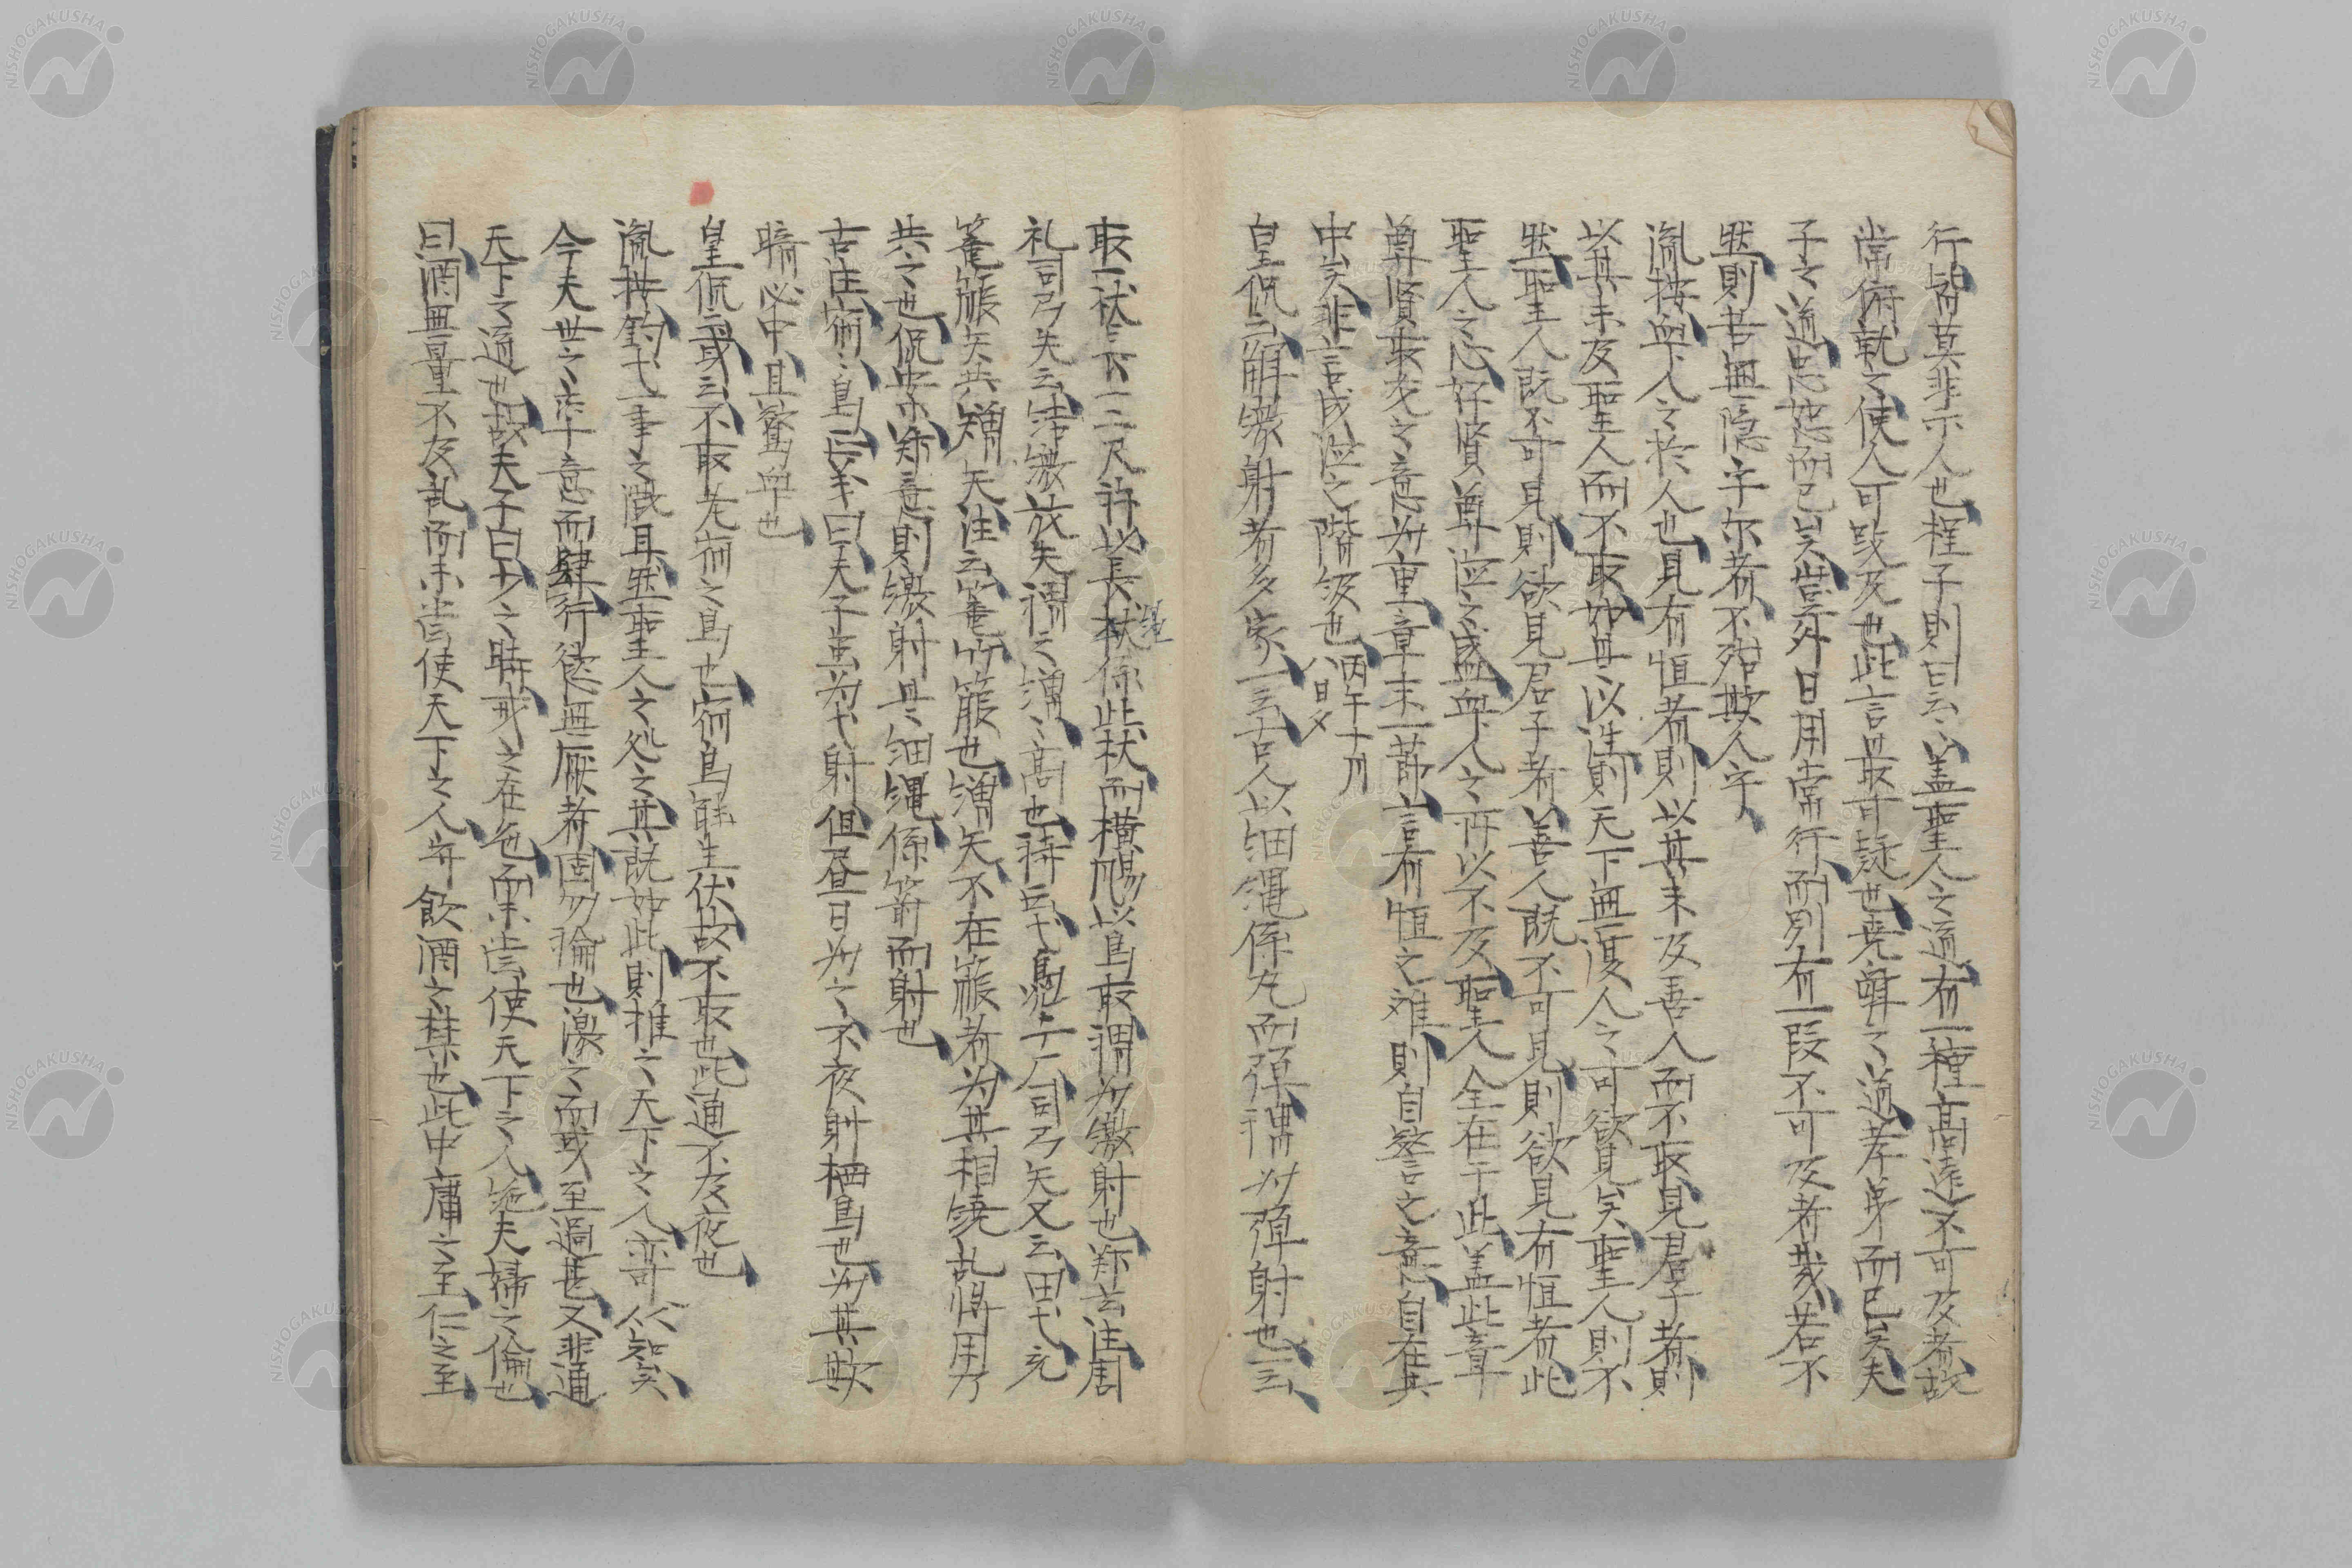 行皆莫非示人也程子則曰云々盖聖人之道有一種高遠不可及者故
常俯就之使人可跂及也此言最可疑也堯舜之道孝弟而已矣夫
子之道忠恕而已矣豈外日用常行而別有一段不可及者哉若不
然則若無隠乎尓者不殆欺人乎
胤按聖人之於人也見有恒者則以其未及善人而不取見君子者則
以其未及聖人而不取如其以浩則天下無復人之可欲見矣聖人則不
然聖人既不可見則欲見君子者善人既不可見則欲見有恒者此
聖人之心好賢尊徳之盛聖人之所以不及聖人全在于此盖此章
尊賢取友之意為重章末一節言有恒之难則自警之意自在其
中矣非言成徳之階級也 丙午十月
八日夕
皇侃云解繳射者多家一云古人以細繩係丸而彈謂為彈射也一云
取一杖長一二尺許以長繩係此杖而横颺以鳥取謂為繳射也鄭玄注周
礼司弓矢云結繳於矢謂之矰々高也莊云弋鳥兇々于厂司弓矢又云田弋充
籠箙矢共矰矢注云籠竹箙也矰矢不在箙者为其相繞乱将用乃
共之也侃案鄭意則繳射是細繩係箭而射也
古注宿々鳥正義曰夫子虽为弋射但昼日为之不夜射栖鳥也为其欺
暗必中且驚衆也
皇侃云或云不取老宿之鳥也宿鳥能生伏故不取也此通不及夜也
胤按釣弋一事之微耳然聖人之処之其既如此則推之天下之人可以知矣
今夫世之恣意而肆行慾無厭者固勿論也激之而或至過甚又非通
天下之道也故夫子曰少之時戒之在色而未嘗使天下之人絶夫婦之倫也
曰酒無量不及乱而未嘗使天下之人斷飲酒之禁也此中庸之至仁之至